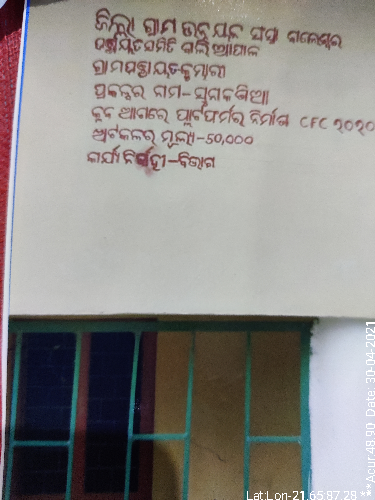 ଜିଲ୍ଲା ଗ୍ରାମ ଉନ୍ନୟନ ସଂସ୍ଥା ବାଲେଶ୍ୱର
ପଞ୍ଚାୟତ ସମିତି ବାଲିଆପାଳ
ଗ୍ରାମପଞ୍ଚାୟତ-କୁମ୍ଭାରୀ
ପ୍ରକଳ୍ପର ନାମ-
କ୍ଲବ ଆଗରେ ପ୍ଲାଟଫର୍ମର ନିର୍ମାଣ CFC ୨୦୨୦
ଅଟକଳର ମୂଲ୍ୟ-50,000
କାର୍ଯ୍ୟ ନିର୍ବାହୀ-ବିଭାଗ
Lat:Lon-21.65:87.28 **
**Acur:48.90 Date: 30-04-2021